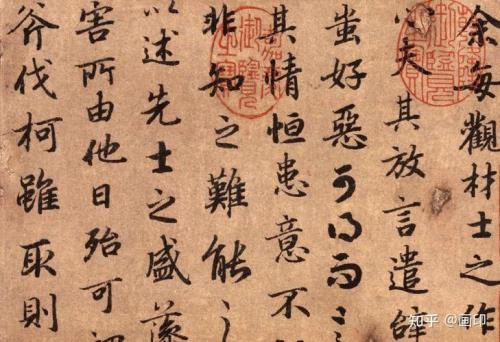 余每觀材士之作
心夫其放言遣辭
蚩好惡可得而
其情恒患意不
非知之難能之
以述先士之盛藻
害所由他日殆可
斧伐柯雖取則
知乎 @画印